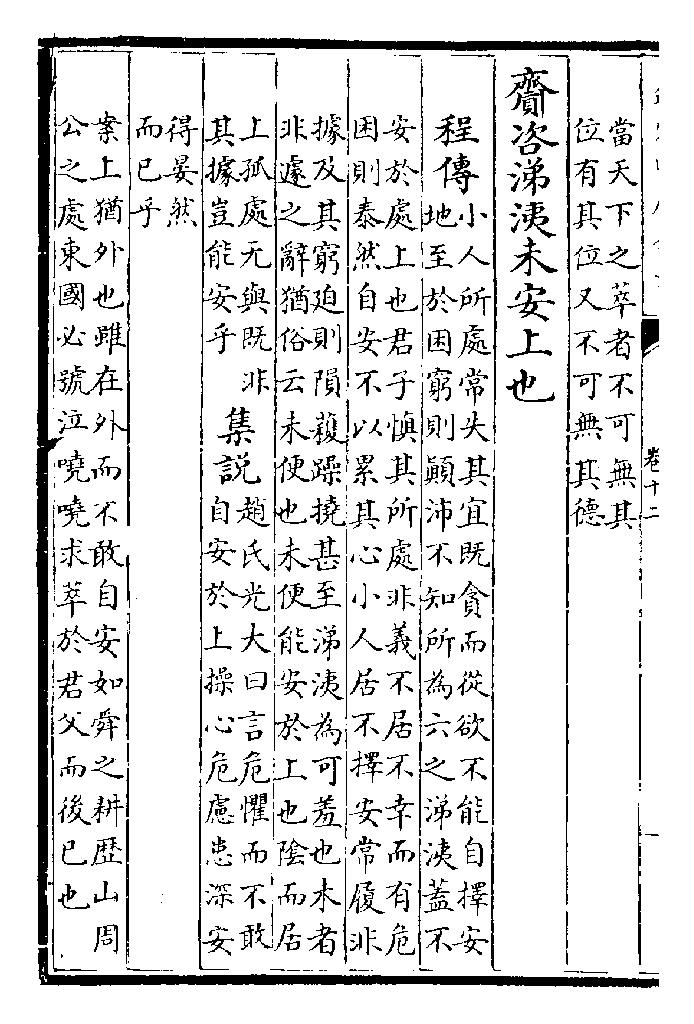 當天下之萃者不可無其
位有其位又不可無其德
齎咨涕洟未安上也
程傳
小人所處常失其宜既貪而從欲不能自擇安
地至於困窮則顛沛不知所為六之涕洟蓋不
安於處上也君子慎其所處非義不居不幸而有危
困則泰然自安不以累其心小人居不擇安常履非
據及其窮迫則隕穫躁撓甚至涕洟為可羞也未者
非遽之辭猶俗云未便也未便能安於上也陰而居
上孤處无與既非
其據豈能安乎
集説
趙氏光大曰言危懼而不敢
自安於上操心危慮患深安
得晏然
而已乎
案上猶外也雖在外而不敢自安如舜之耕歷山周
公之處東國必號泣嘵嘵求萃於君父而後已也
卷十二